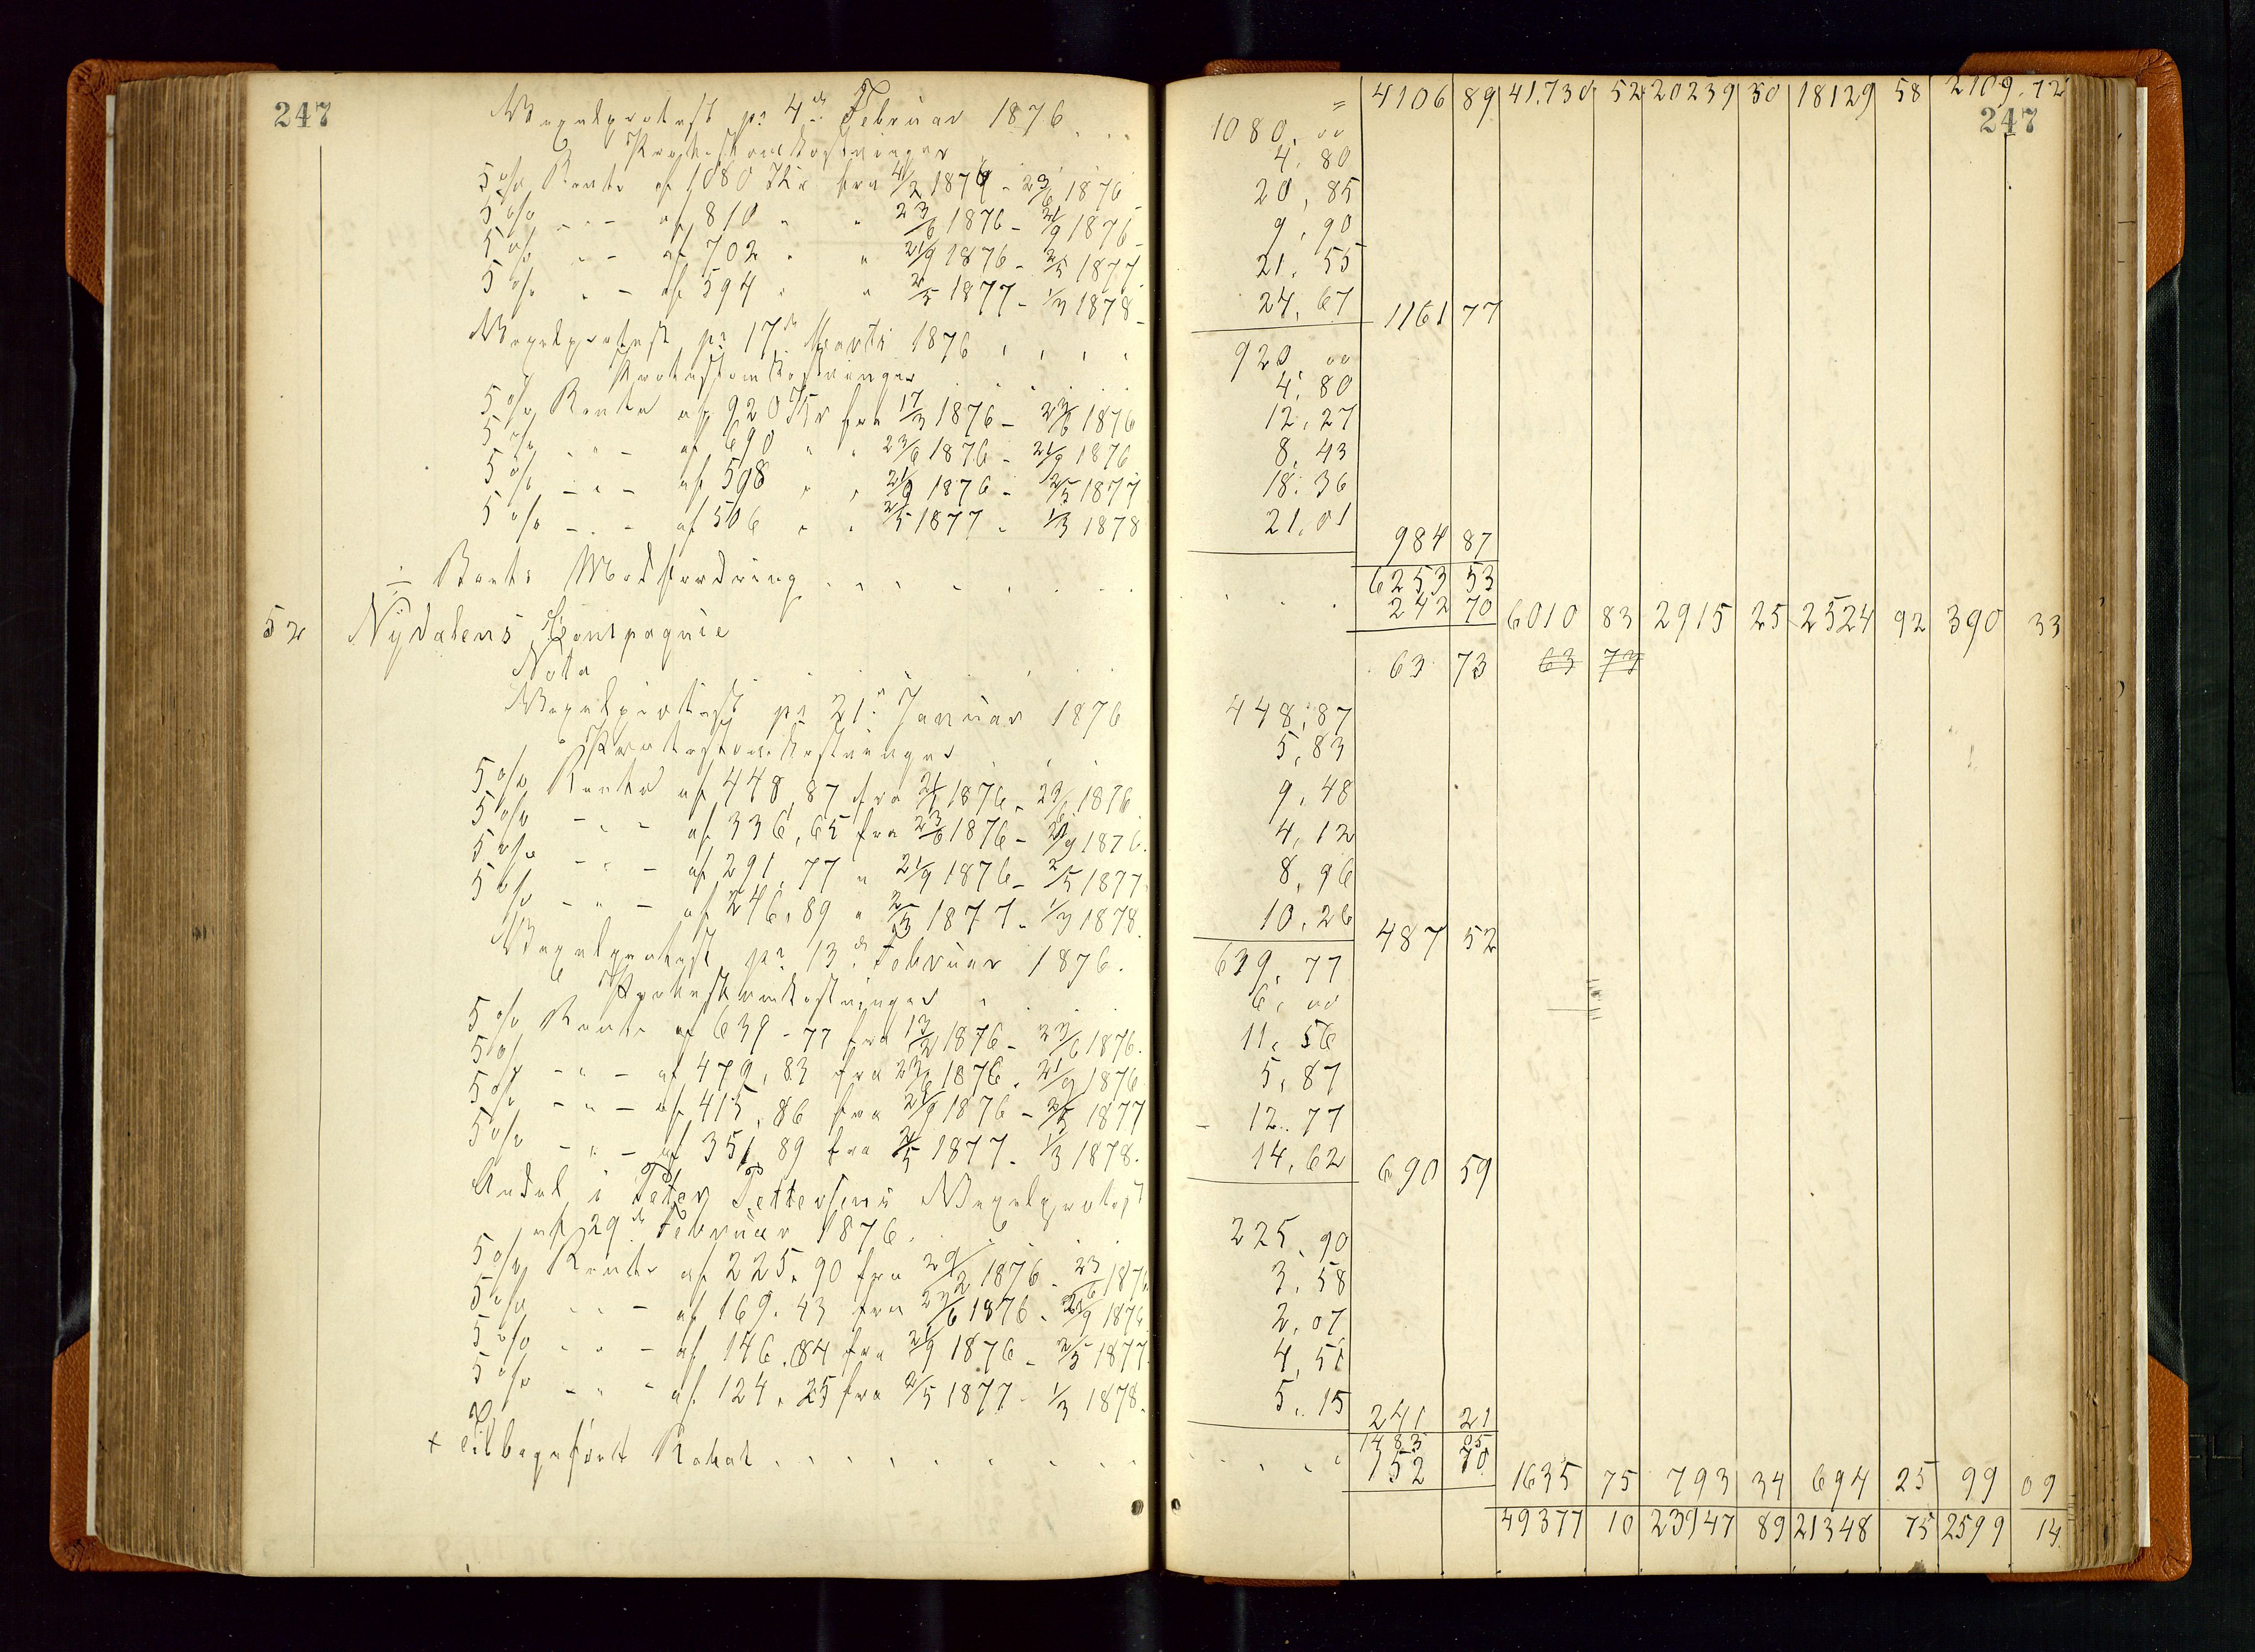 247
= 4106 89 41.730 52 20239 30 18129 58 2109. 72
247
Vexelprotest pr 4de Februar 1876 1080. 00
Protestomkostninger 4. 80
5 o/o Rente af 1080 Kr fra 4/2 1876 - 23/6 1876 20, 85
5 o/o - " - af 810 " " 23/6 1876 - 21/9 1876 - 9, 90
5 o/o - " - af 702 " " 21/9 1876 - 2/5 1877 21. 55
5 o/o - " - af 594 " " 2/5 1877 - 1/3 1878 - 24. 67 1161 77
Vexelprotest pr 17de Marts 1876 920. 00
Protestomkostninger 4. 80
5 o/o Rente af 920 Kr fra 17/3 1876 - 23/6 1876 12. 27
5 o/o - " - af 690 " " 23/6 1876 - 21/9 1876 8, 43
5 o/o - " - af 598 " " 21/9 1876 - 2/5 1877 18. 36
5 o/o - " - af 506 " " 2/5 1877 - 1/3 1878 21. 01 984 87
6253 53
÷ Boets Modfordring 242 70 6010 83 2915 25 2524 92 390 33
52 Nydalens Compagnie
Nota 63 73 63 73
Vexelprotest pr 21de Januar 1876 448, 87
Protestomkostninger 5, 83
5 o/o Rente af 448, 87 fra 21/1 1876 - 23/6 1876 9, 48
5 o/o - " - af 336, 65 fra 23/6 1876 - 21/9 1876. 4, 12
5 o/o - " - af 291, 77 " 21/9 1876 - 2/5 1877 8, 96
5 o/o - " - af 246, 89 " 2/5 1877 - 1/3 1878. 10, 26 487 52
Vexelprotest pr 13de Februar 1876. 639. 77
Protestomkostninger 6, 00
5 o/o Rente af 639 - 77 fra 13/2 1876 - 23/6 1876. 11. 56
5 o/o - " - af 479, 83 fra 23/6 1876. 21/9 1876 5, 87
5 o/o - " - af 415, 86 fra 21/9 1876 - 2/5 1877 12. 77
5 o/o - " - af 351, 89 fra 2/5 1877 - 1/3 1878. 14, 62 690 59
Andel i Peter Pettersens Vexelprotest
af 29de Februar 1876. 225, 90
5 o/o Rente af 225. 90 fra 29/2 1876 - 23/6 1876 3. 58
5 o/o - " - af 169. 43 fra 23/6 1876 - 21/9 1876 2, 07
5 o/o - " - af 146. 84 fra 21/9 1876 - 2/5 1877 4, 51
5 o/o - " - af 124. 25 fra 2/5 1877 - 1/3 1878. 5, 15 241 21
1483 05
+ Tilbageført Rabat 152 70 1635 75 793 34 694 25 99 09
49377 10 23947 89 21348 75 2599 14